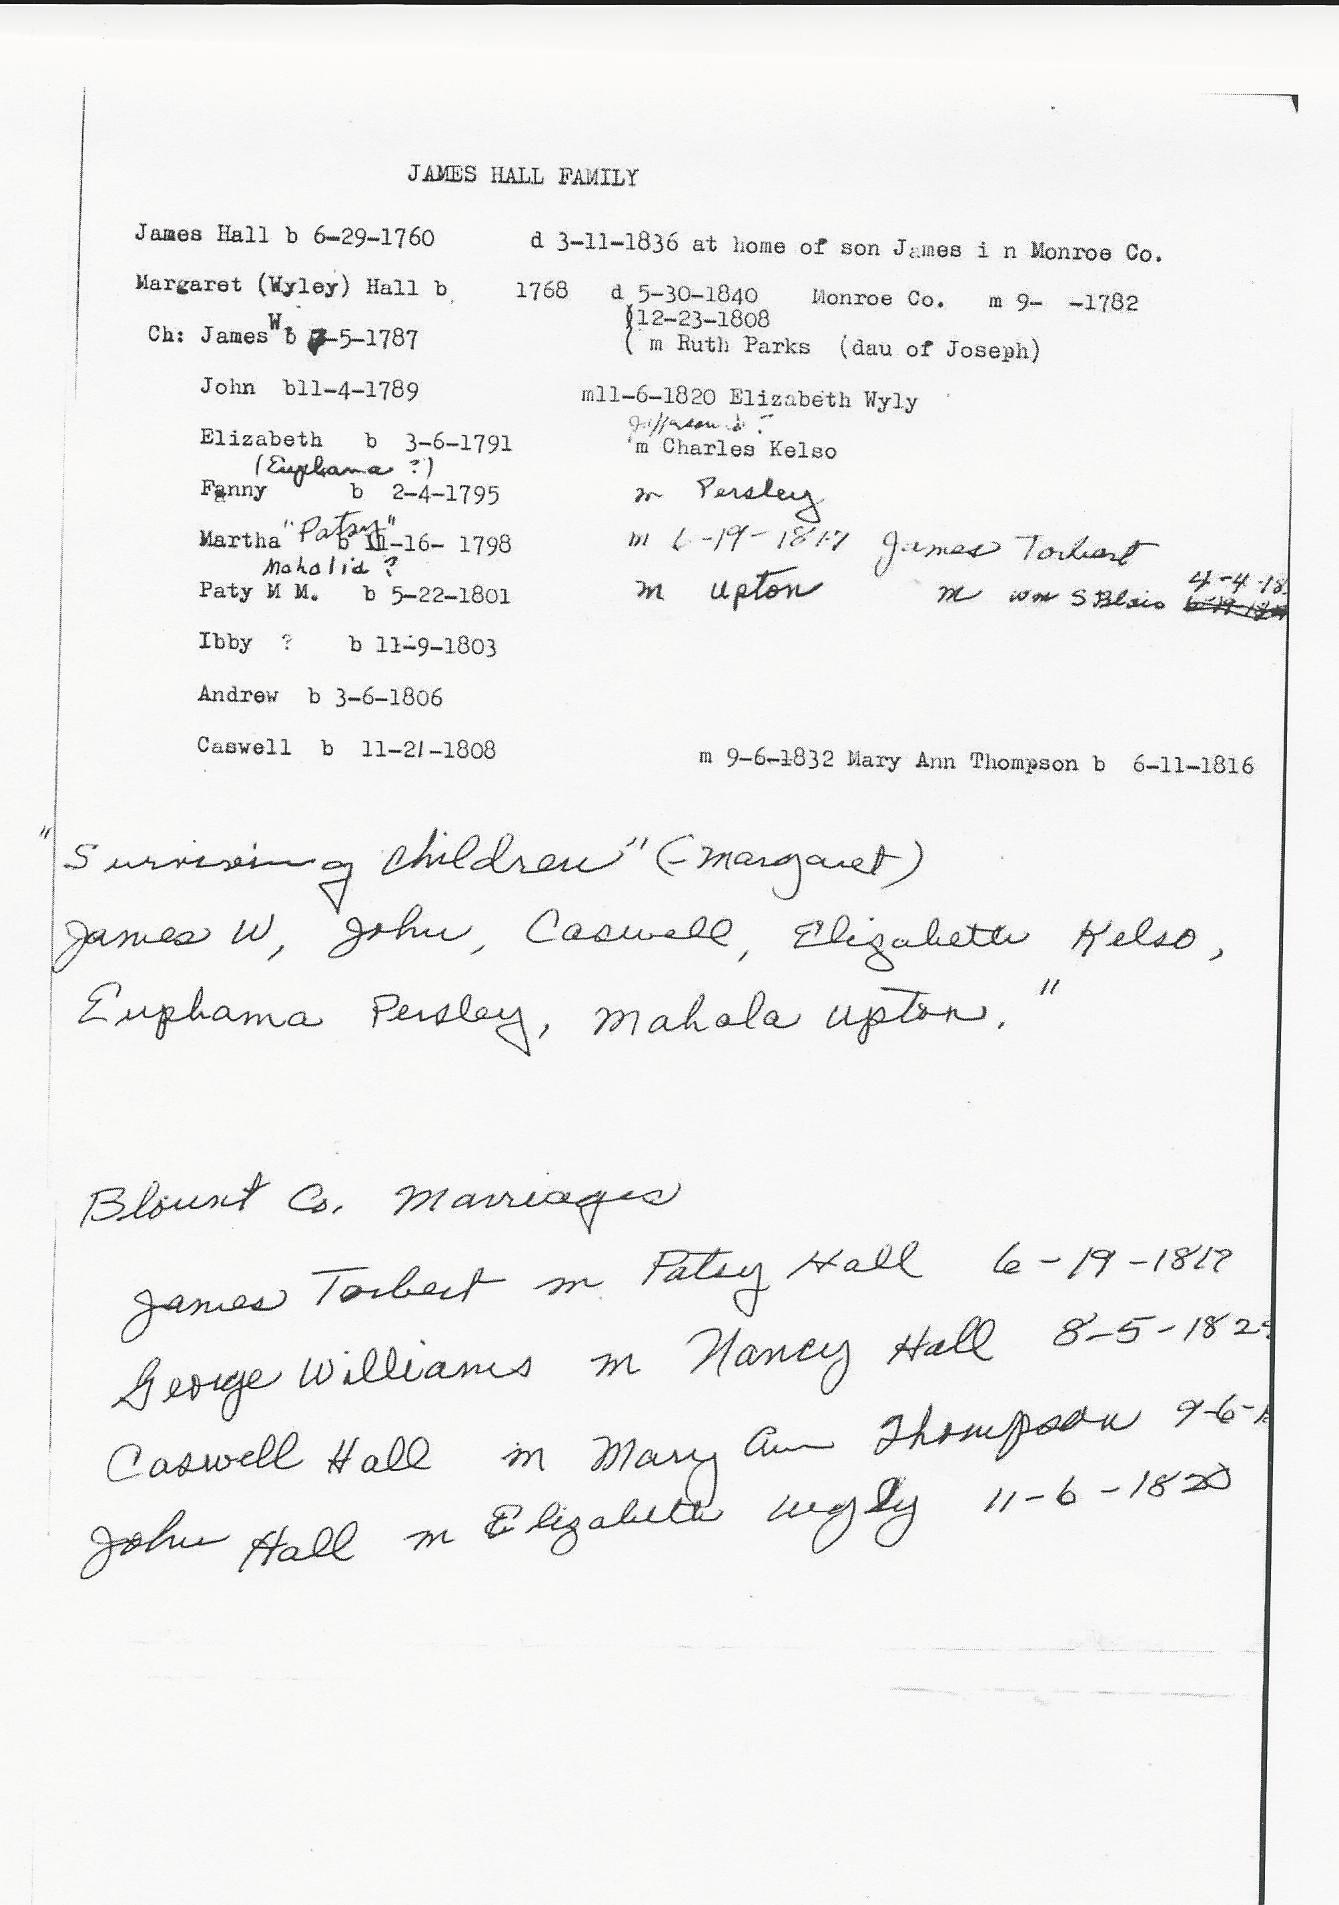 JAMES HALL FAMILY
James Hall b 6-29-1760 d 3-11-1836 at home of son James i n Monroe Co.
Margaret (Wyley) Hall b 1768 d 5-30-1840 Monroe Co. m 9- -1782
(12-23-1808
Ch: James W. b -5-1787 ( m Ruth Parks (dau of Joseph)
John b11-4-1789 m11-6-1820 Elizabeth Wyly
Elizabeth b 3-6-1791 m Charles Kelso
(Euphama ?)
Fanny b 2-4-1795 m Persley
Martha "Patsy" b 11-16- 1798 m 6-19-1817 James Torbert
Mahalia ?
Paty M M. b 5-22-1801 m Upton m Wm S Blair 4-4-18
Ibby ? b 11-9-1803
Andrew b 3-6-1806
Caswell b 11-21-1808 m 9-6-1832 Mary Ann Thompson b 6-11-1816
"Surviving children" (-Margaret)
James W, John, Caswell, Elizabeth Kelso,
Euphama Persley, Mahala Upton."
Blount Co. Marriages
James Torbert m Patsy Hall 6-19-1817
George Williams m Nancy Hall 8-5-182
Caswell Hall m Mary Ann Thompson 9-6-1
John Hall m Elizabeth Wyly 11-6-1820